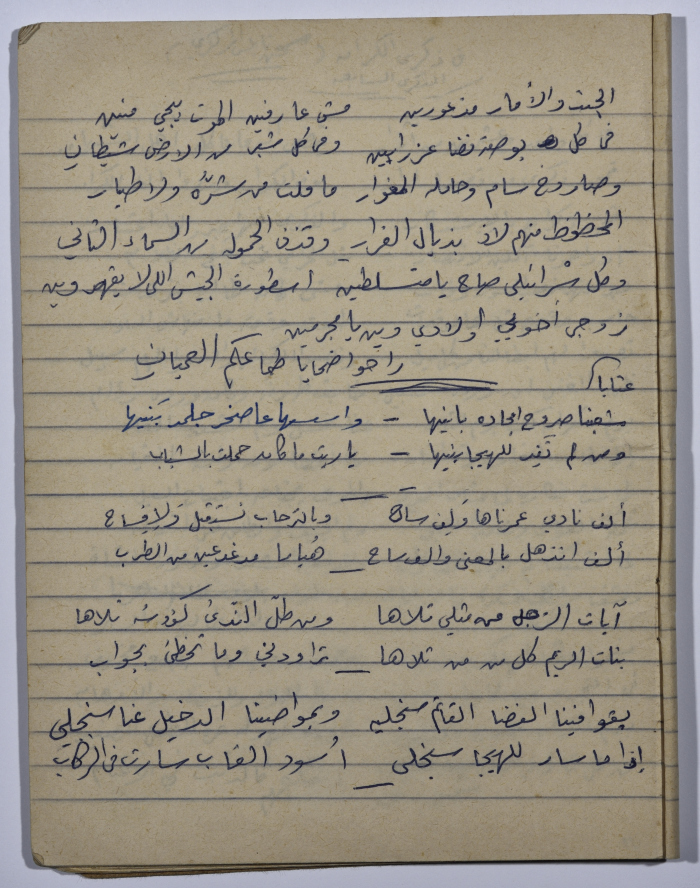 الجيت والأمار مذعورين مش عارفين الموت بيجي منين
في كل بوصة فضا عزرايين وفي كل شبر من الارض شيطاني
وصاروخ سام وحامله المغوار ما فلت من شره ولا طيار
المحظوظ منهم لاذ بذيال الفرار وقذف الحموله من السماء الثاني
وكل سرائيلي صاح يا متسلطين اسطورة الجيش اللي لا يقهر وين
زوجي أخوي أولادي وين يا مجرمين
راحوا ضحايا طماعكم العميان
عتابا
شعبنا صروح امجاده بانيها - واسسها عاصخر جلمد بَنيها
ومن لم تَفِد للهيجا بنيها - يا ريت ما كانت حملت بالشباب
ألف نادي عمرناها وَلِف ساح وبالترحاب نستقبل ولافساح
ألف انذهل بالمعنى والف ساح هُياما مدغدغين من الطرب
آيات الزجل من مثلي تلاها ومن طلّ الندى كؤوسه تلاها
بنات الريم كل من من تلاها تراودني وما تحظى بجواب
بقوافينا الفضا القاتم سنجليه وبمواضينا الدخيل عنا سينجلي
إذا ما سار للهيجا سبنجلي أسود الغاب سارت في الركاب